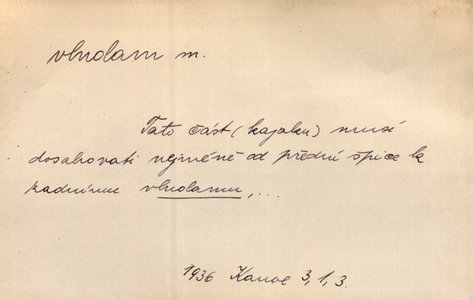 vlnolam m.
Tato část (kajaku) musí
dosahovati nejméně od přední špice k
zadnímu vlnolamu,...
1936 Kanoe 3, 1, 3.